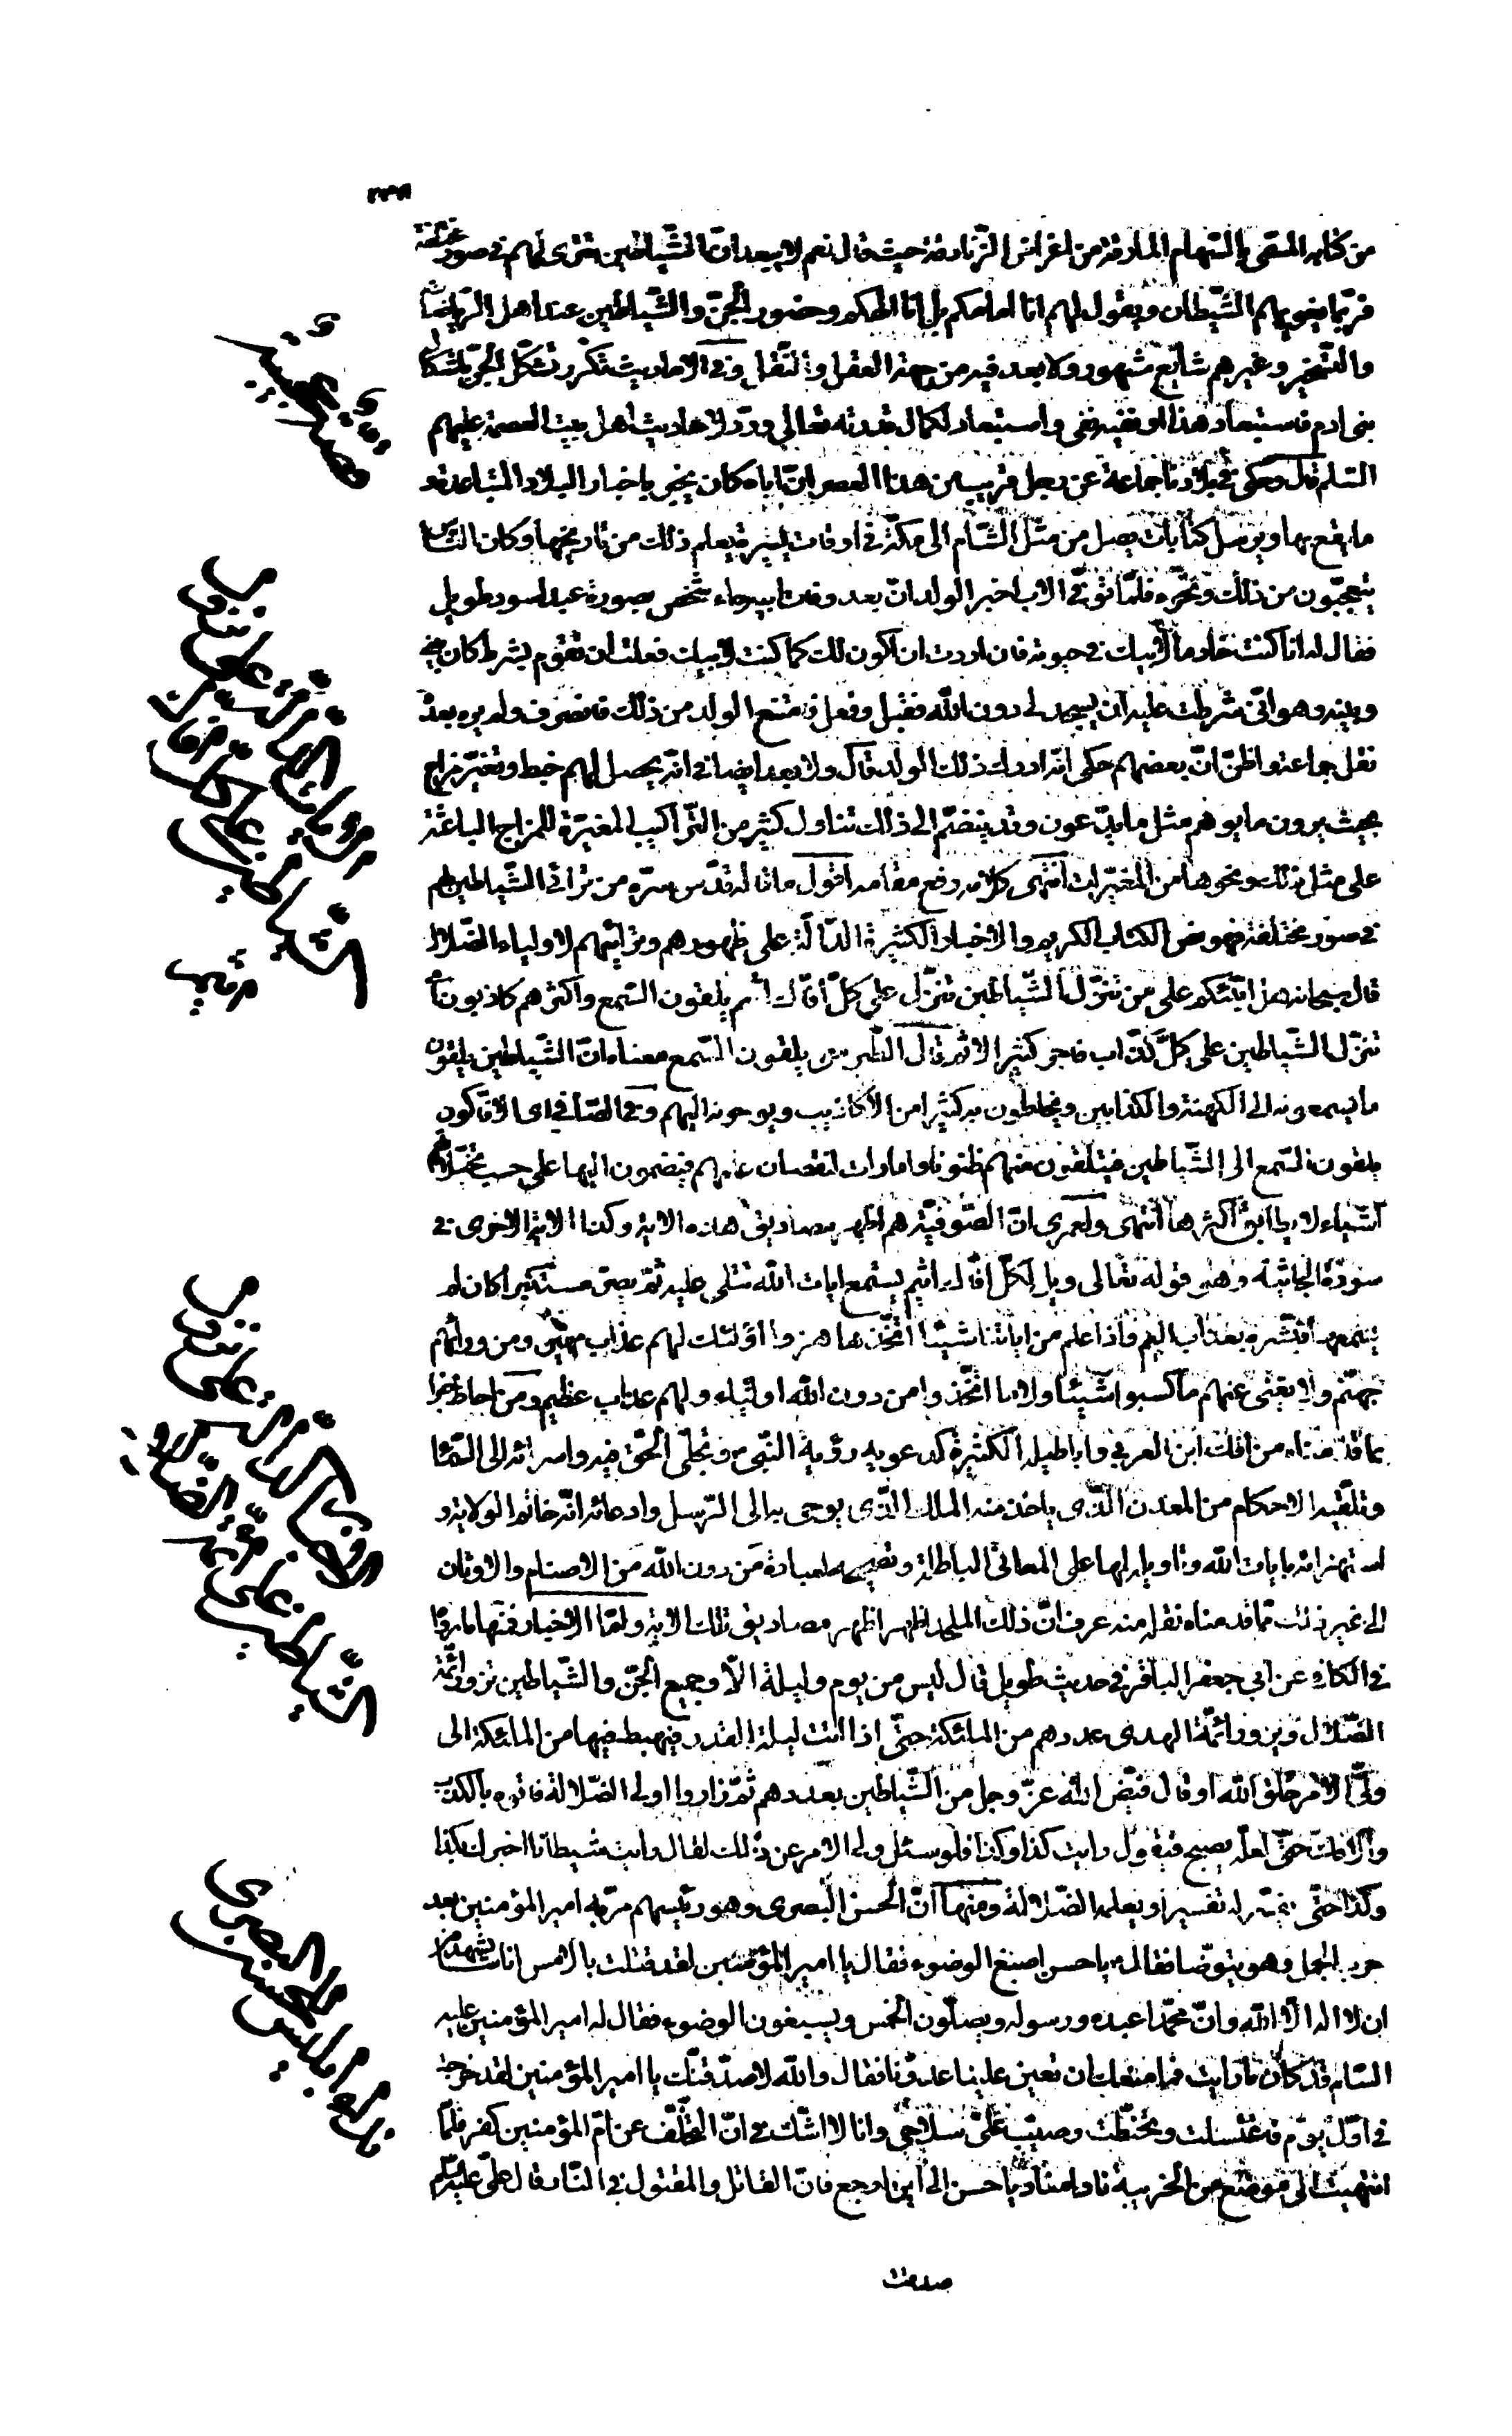 ٢٣٨
من كتابه المسمى بالسهام المارقة من اغراض الزنادقة حيث قال نعم لا يبعد انّ الشّياطين تترى لهم في صور مختلفة
فربّما يغويهم الشّيطان ويقول لهم انا امامكم بل انا الهكم وحضور الجنّ والشّياطين عند اهل الرّياضات
والتّسخير وغيرهم شايع مشهور ولا بعد فيه من جهة العقل والنّقل وفي الاحاديث تكرّر تشكّل الجنّ باشكال
بنى ادم فاستبعاد هذا او نفيه نفى واستبعاد لكمال قدرته تعالى وردّ لاحاديث اهل بيت العصمة عليهم
السّلم قال وحكى في بلادنا جماعة عن رجل قريب من هذا العصر انّ اباه كان يخبر باخبار البلاد المتباعدة و
ما يقع بها ويرسل كتابات يصل من مثل الشّام الى مكّة في اوقات يسيرة يعلم ذلك من تاريخها وكان النّاس
يتعجّبون من ذلك وتحيّره فلمّا توفّى الاب اخبر الولد انّ بعد وفات ابيه جاء شخص بصورة عبد اسود طويل
فقال له انا كنت خادما لابيك في حيوته فان اردت ان اكون لك كما كنت لابيك فعلت ان تقوم بشرط كان بيني
وبينه وهو انّى شرطت عليه ان يسجد لى دون الله فقبل وفعل فامتنع الولد من ذلك فانصرف ولم يره بعد
نقل جماعة واظنّ انّ بعضهم حكى انّه ادرك ذلك الولد قال ولا بعد ايضا في انّه يحصل لهم خبط وتغيّر مزاج
بحيث يرون ما يوهم مثل ما يدّعون وقد ينضمّ الى ذلك تناول كثير من التّراكيب المغيّرة للمزاج الباعثة
على مثل ذلك ونحوها من المغيّرات انتهى كلامه رفع مقامه اقول ما قاله قدّس سرّه من ترائى الشّياطين لهم
في صور مختلفة فهو نصّ الكتاب الكريم والاخبار الكثيرة الدّالّة على ظهورهم وترائيهم لاولياء الضّلال
قال سبحانه هل انبّئكم على من تنزّل الشّياطين تنزّل على كلّ افّاك اثيم يلقون السّمع واكثرهم كاذبون اى
تنزّل الشّياطين على كلّ كذّاب فاجر كثير الاثم قال الطّبرسى يلقون السّمع معناه انّ الشّياطين يلقون
ما يسمعونه الى الكهنة والكذّابين ويخلطون به كثيرا من الاكاذيب ويوحونه اليهم وفي الصّافى اى الافّاكون
يلقون السّمع الى الشّياطين فيتلقّون منهم ظنونا وامارات لنقصان علمهم فيضمّون اليها على حسب تخيّلاتهم
اشياء لا يطابق اكثرها انتهى ولعمرى انّ الصّوفيّة هم اظهر مصاديق هذه الاية وكذا الاية الاخرى في
سورة الجاثية وهى قوله تعالى ويل لكلّ افّاك اثيم يستمع ايات الله تتلى عليه ثمّ يصرّ مستكبرا كان لم
يسمعها فبشّره بعذاب اليم واذا علم من اياتنا شيئا اتّخذها هزوا اولئك لهم عذاب مهين ومن ورائهم
جهنّم ولا يغنى عنهم ما كسبوا شيئا ولا ما اتّخذوا من دون الله اولياء ولهم عذاب عظيم ومن احاط خبرا
بما قدّمناه من افك ابن العربى واباطيله الكثيرة كدعويه رؤية النّبى ص وتجلّى الحقّ فيه واسرائه الى السّماء
وتلقّيه الاحكام من المعدن الّذى ياخذ منه الملك الّذى يوحى به الى الرّسل وادعائه انّه خاتم الولاية و
استهزائه بايات الله وتاويله لها على المعانى الباطلة وتصحيحه لعبادة من دون الله من الاصنام والاوثان
الى غير ذلك ممّا قدمناه نقله منه عرف انّ ذلك الملحد اظهر مصاديق تلك الاية وامّا الاخبار فمنها ما روا
في الكافى عن ابى جعفر الباقر في حديث طويل قال ليس من يوم وليلة الاّ وجميع الجنّ والشّياطين تزور ائمّة
الضّلال ويزور ائمّة الهدى عددهم من الملئكة حتّى اذا اتت ليلة القدر فيهبط فيها من الملئكة الى
ولىّ الامر خلق الله او قال قيّض الله عزّ وجل من الشّياطين بعددهم ثمّ زاروا ولى الضّلالة فاتوه بالكذب
والافك حتّى لعلّه يصبح فيقول رايت كذا وكذا فلو سئل ولى الامر عن ذلك لقال رايت شيطانا اخبرك بكذا
وكذا حتّى يفسّر له تفسيرا ويعلمه الضّلالة ومنها انّ الحسن البصرى وهو رئيسهم مرّ به امير المؤمنين بعد
حرب الجمل وهو يتوضّا فقال له يا حسن اصبغ الوضوء فقال يا امير المؤمنين لقد قتلت بالامس اناسا يشهدون
ان لا اله الاّ الله وانّ محمّدا عبده ورسوله ويصلّون الخمس ويسبغون الوضوء فقال له امير المؤمنين عليه
السّلم قد كان ما رايت فما منعك ان تعين علينا عدوّنا فقال والله لاصدّقنّك يا امير المؤمنين لقد خرجت
في اوّل يوم فاغتسلت وتحنّطت وصببت علىّ سلاحى وانا لا اشكّ في انّ التخلّف عن امّ المؤمنين كفر فلمّا
انتهيت الى موضع من الخريبة نادا مناد يا حسن الى اين ارجع فانّ القاتل والمقتول في النّار قال علىّ عليه السّلم
صدقت